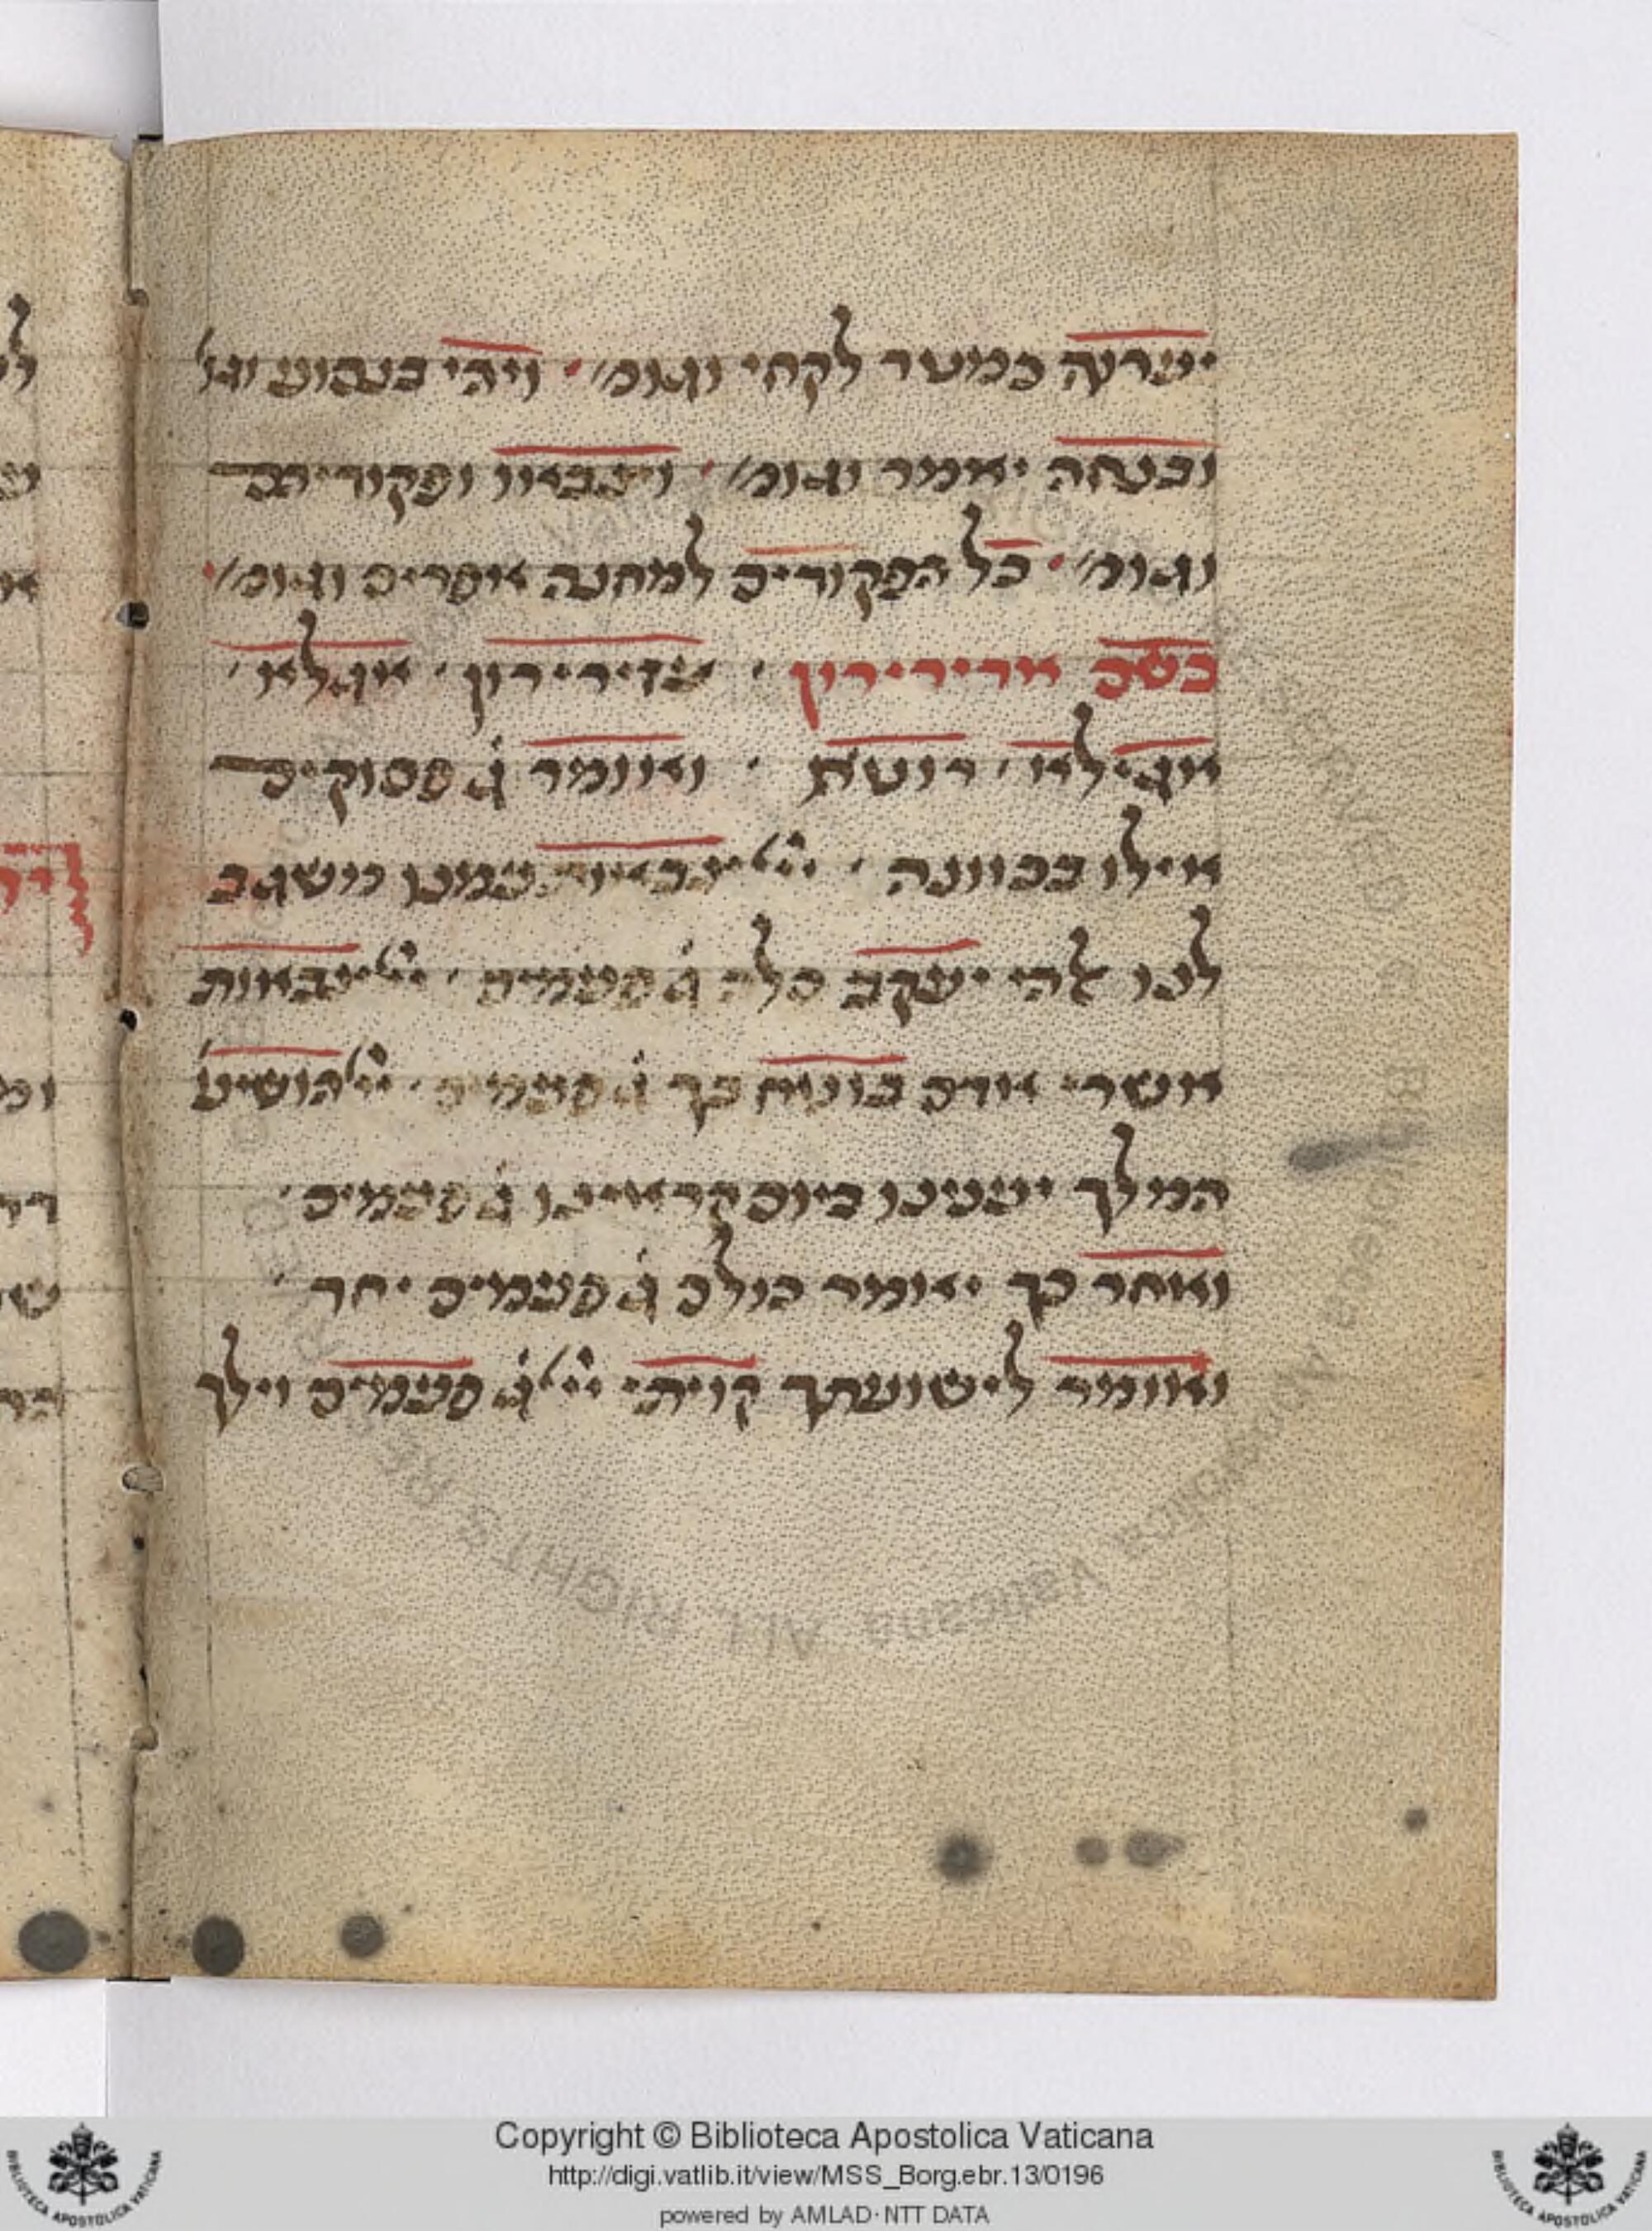 יערוף כמטר לקחי וגומ׳ ויהי בנסוע וגו׳
ובנחה יאמר וגומ׳ וצבאו ופקודיהם
וגומ׳ כל הפקודים למחנה אפרים וגומ׳
בשם אדירירון עדירירון אגלא
אגילא רושא ואומר ג̇ פסוקים
אילו בכוונה ייי צבאות עמנו משגב
לנו אלהי יעקב סלה ג̇ פעמים ייי צבאות
אשרי אדם בוטח בך ג̇ פעמים ייי הושיע
המלך יעננו ביום קראינו ג̇ פעמים
ואחר כך יאומר כולם ג̇ פעמים יחד
ואומר לישועתך קויתי ייי ג̇ פעמים וילך
Copyright © Biblioteca Apostolica Vaticana
http://digi.vatlib.it/view/MSS_Borg.ebr.13/0196
powered by AMLAD·NTT DATA